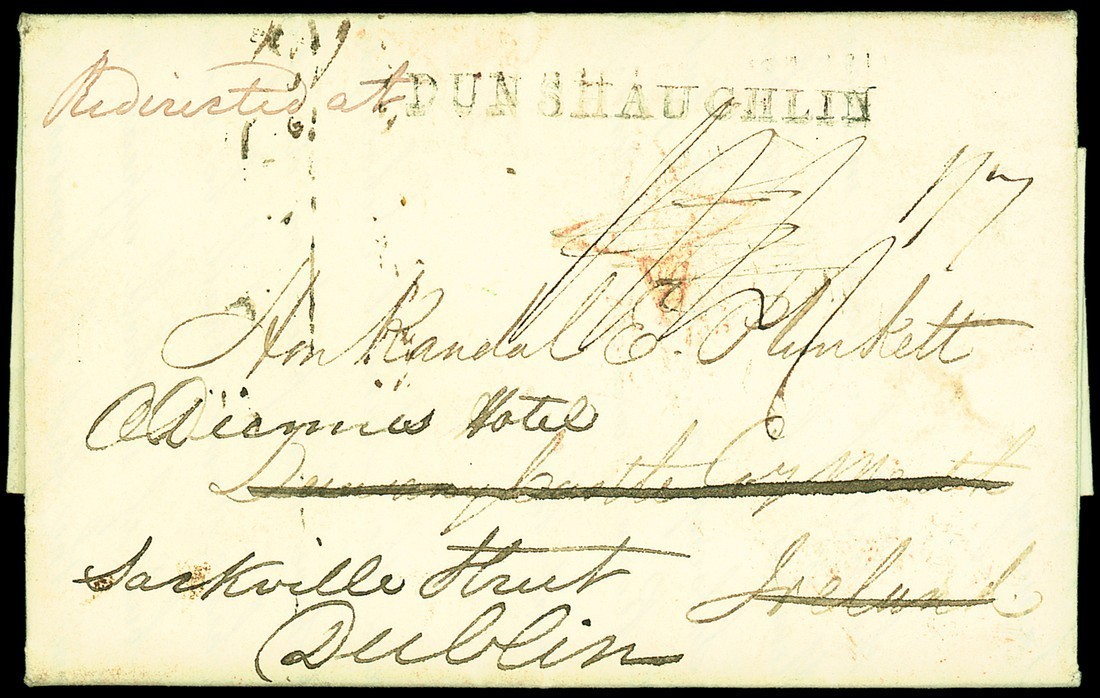 Redirected at DUNSHAUGHLIN
1/7
Hon Randal E. Plunkett
Hotel
Dunsany Castle Coy Meath
Sackville Street Ireland
Dublin